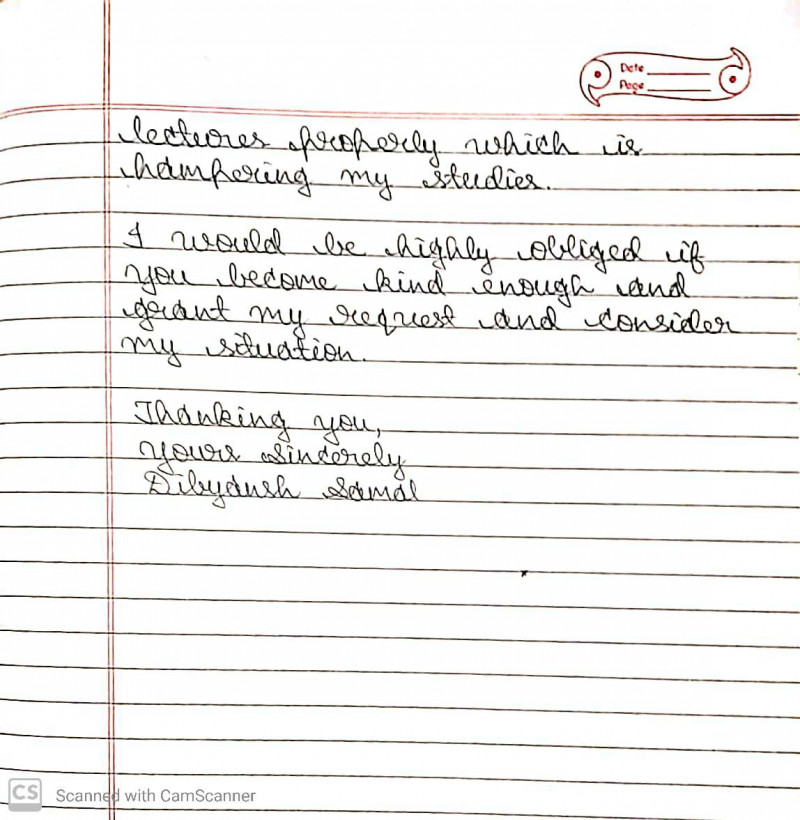 Date
Page
lectures properly which is
hampering my studies.
I would be highly obliged if
you become kind enough and
grant my request and consider
my situation.
Thanking you,
yours sincerely
Dibyansh Samal
CS Scanned with CamScanner